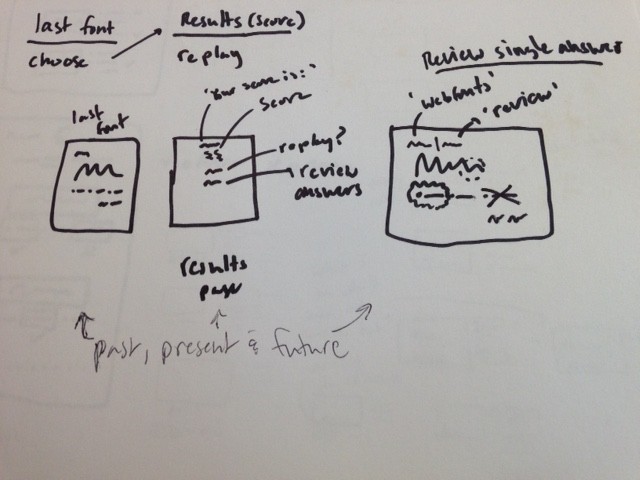 last font
choose
Results (score)
replay
Review single answer
last
font
'Your score is:'
score
replay?
review
answers
'webfonts'
'review'
results
page
past, present & future